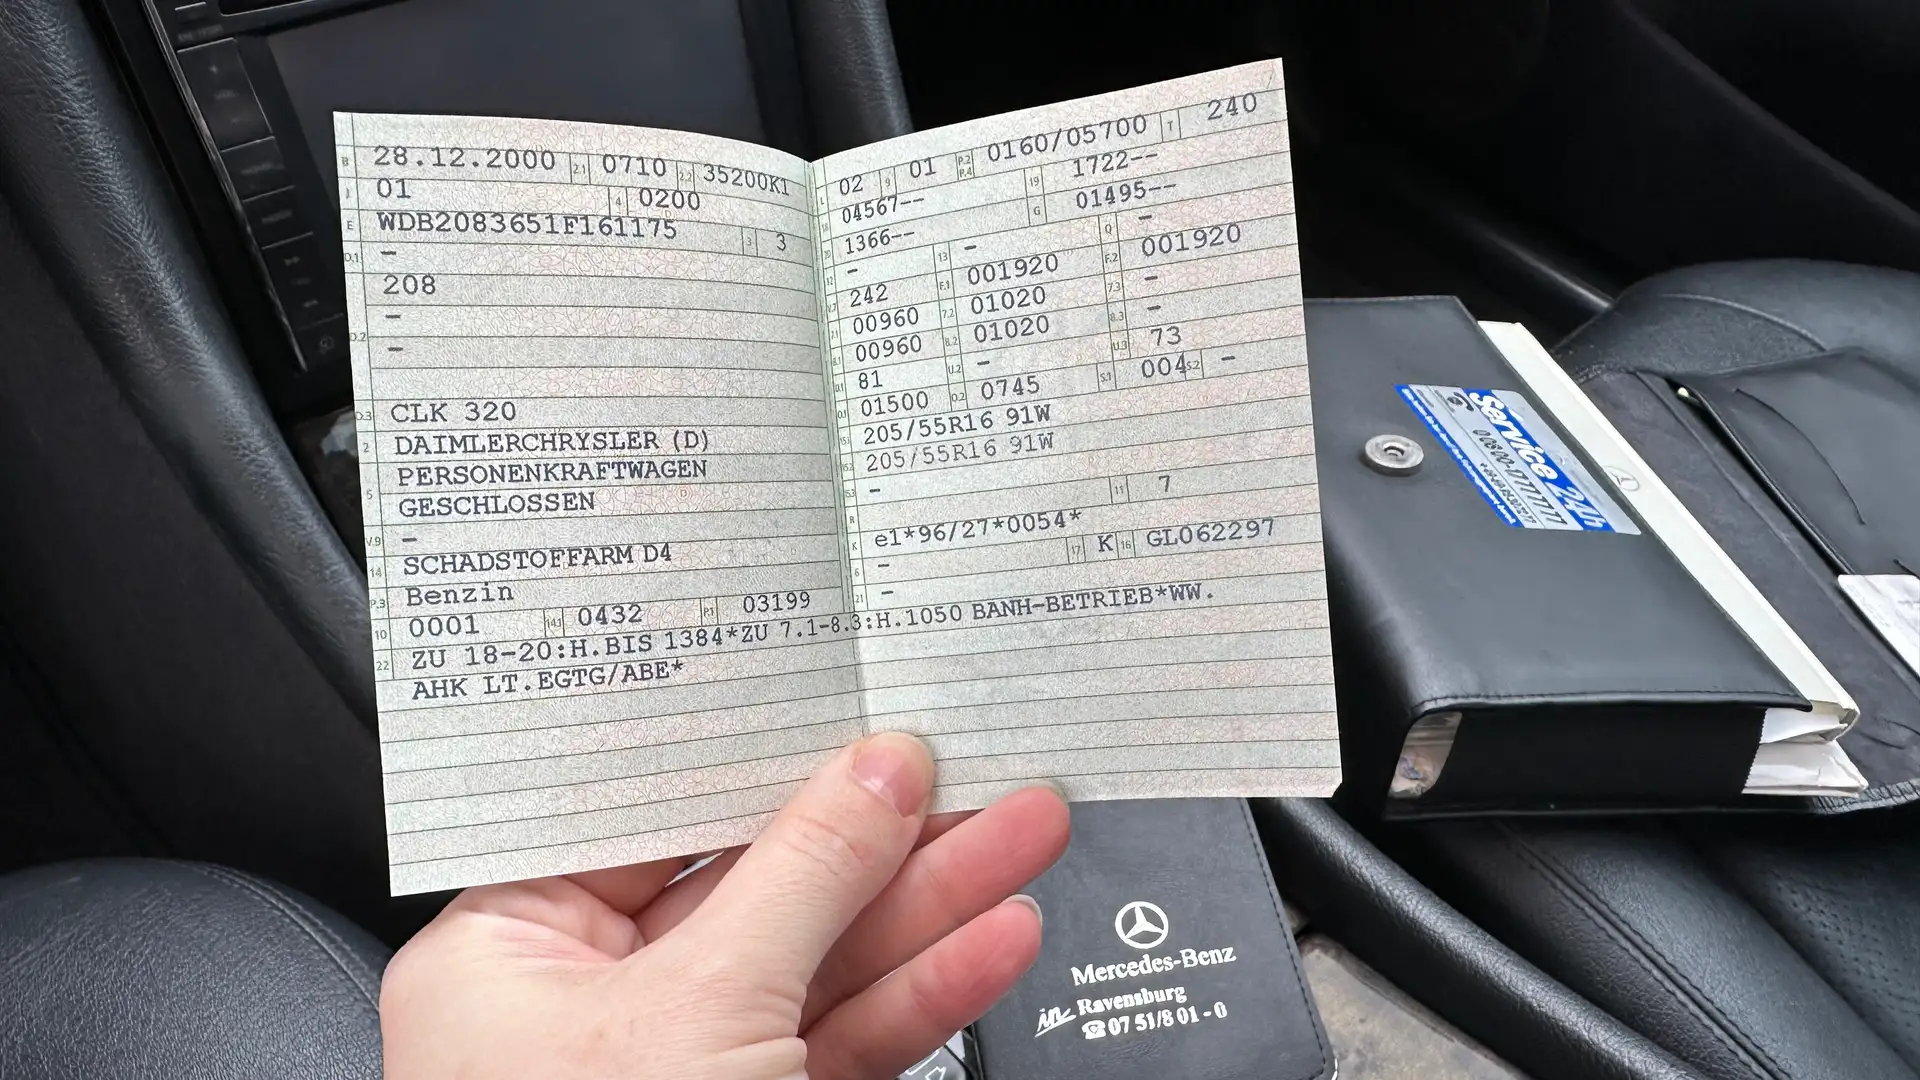 B 28.12.2000 2.1 0710 2.2 35200K1
J 01 4 0200
E WDB2083651F161175 3 3
D.1 -
208
D.2 -
-
D.3 CLK 320
2 DAIMLERCHRYSLER (D)
5 PERSONENKRAFTWAGEN
GESCHLOSSEN
V.9 -
14 SCHADSTOFFARM D4
P.3 Benzin
10 0001 14.1 0432 P.1 03199
22 ZU 18-20:H.BIS 1384*ZU 7.1-8.3:H.1050 BANH-BETRIEB*WW.
AHK LT.EGTG/ABE*
L 02 9 01 P.2 P.4 0160/05700 T 240
18 04567-- 19 1722--
20 1366-- G 01495--
12 - 13 - Q -
V.7 242 F.1 001920 F.2 001920
7.1 00960 7.2 01020 7.3 -
8.1 00960 8.2 01020 8.3 -
U.1 81 U.2 - U.3 73
O.1 01500 O.2 0745 S.1 004 S.2 -
15.1 205/55R16 91W
15.2 205/55R16 91W
15.3 -
R 11 7
K e1*96/27*0054*
6 - 17 K 16 GL062297
21 -
Service 24h
Mercedes-Benz
in Ravensburg
☎ 07 51/8 01 - 0